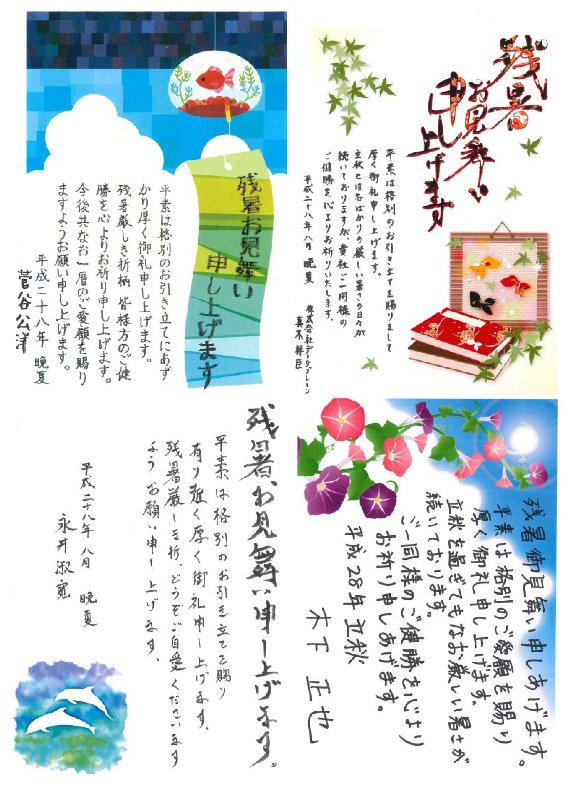 残暑
お見舞い
申し上げます
平素は格別のお引き立てを賜りまして
厚く御礼申し上げます。
立秋とは名ばかりの厳しい暑さの日々が
続いておりますが貴社ご一同様の
ご健勝を心よりお祈りいたします。
平成二十八年八月 晩夏
残暑お見舞い
申し上げます
平素は格別のお引き立てにあず
かり厚く御礼申し上げます。
残暑厳しき折柄皆様方のご健
勝を心よりお祈り申し上げます。
今後共なお一層のご愛顧を賜り
ますようお願い申し上げます。
平成二十八年 晩夏
菅谷公洋
残暑御見舞い申しあげます。
平素は格別のご愛顧を賜り
厚く御礼申し上げます。
立秋を過ぎてもなお厳しい暑さが
続いております。
ご一同様のご健勝を心より
お祈り申しあげます。
平成28年立秋
木下 正也
残暑お見舞い申し上げます。
平素は格別のお引き立てを賜り
有り難く厚く御礼申し上げます。
残暑厳しき折、どうぞご自愛くださいます
ようお願い申し上げます。
平成二十八年八月 晩夏
永井淑寛